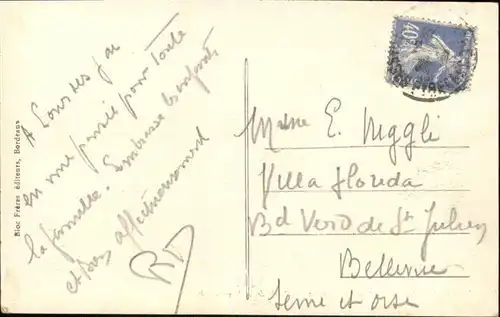 Bloc Frères éditeurs, Bordeaux
A Lourdes j'ai
eu une pensée pour toute
la famille. Embrasse les enfants
et bien affectueusement
RD
40c
Mme E. Neggli
Villa Florida
Bd Verd de St Julien
Bellevue
Seine et Oise